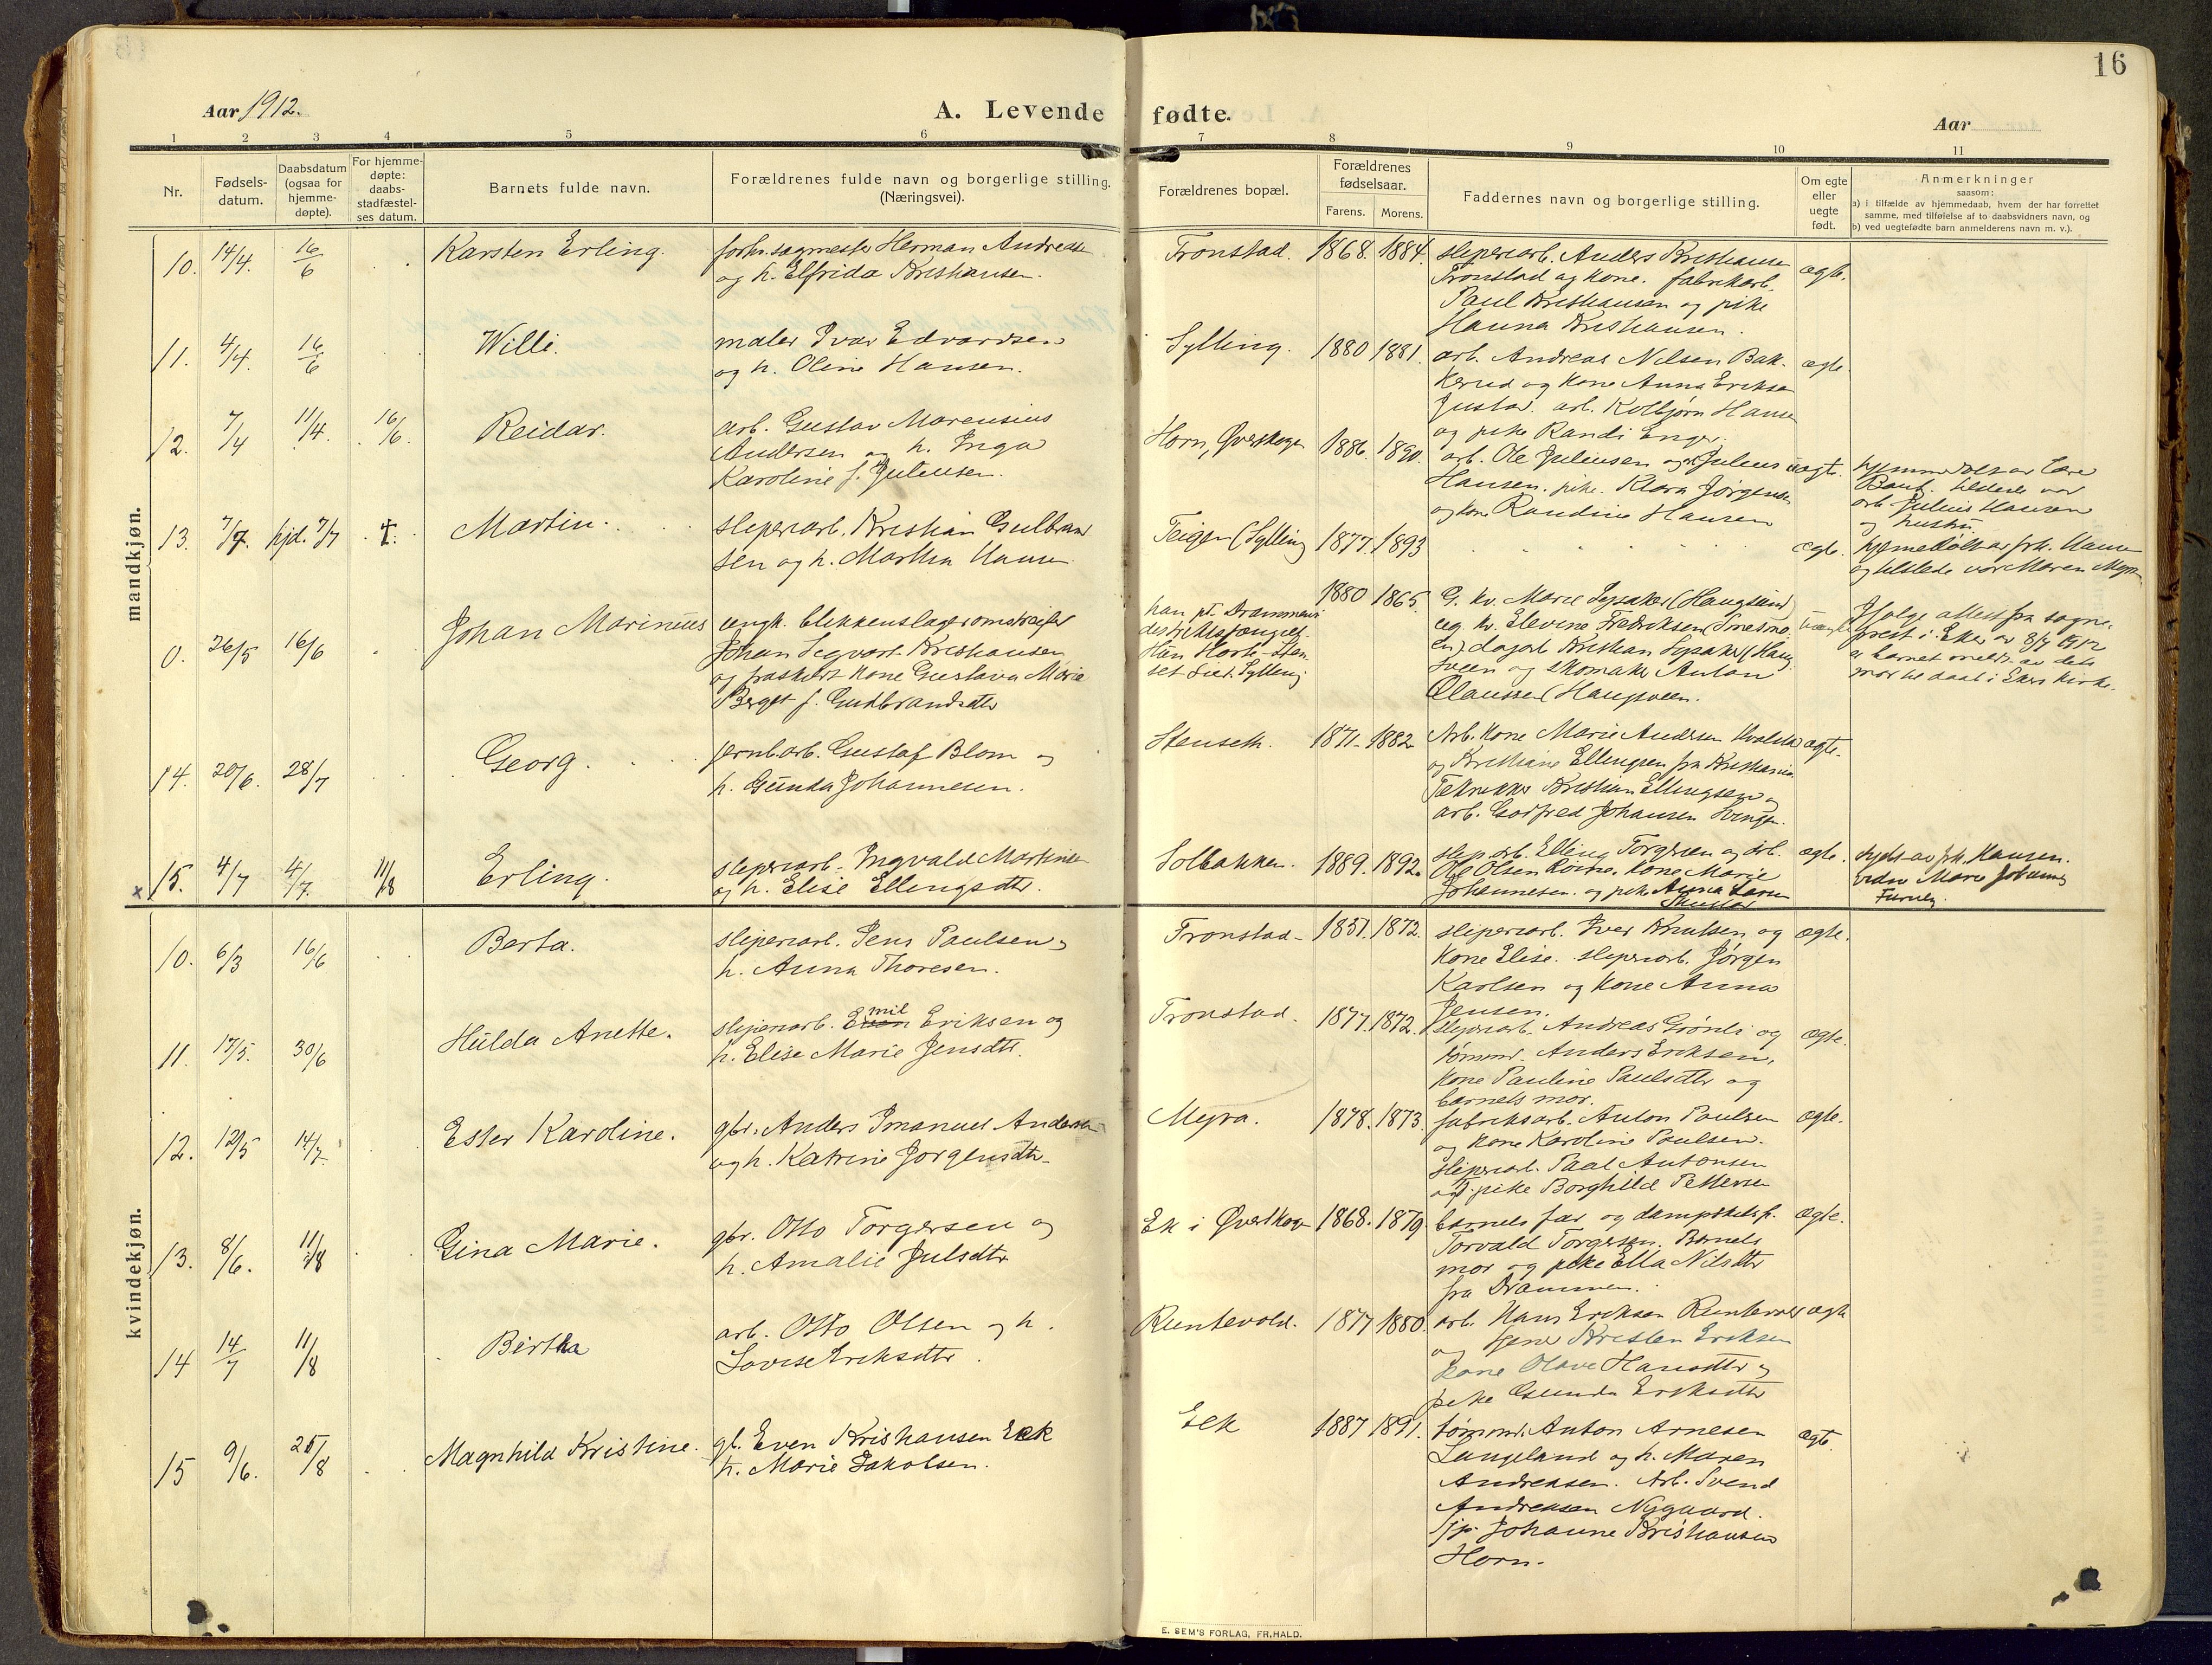 16
Aar 1912.
A. Levende fødte.
Aar
1 2 3 4 5 6 7 8 9 10 11
Nr.
Fødsels-
datum.
Daabsdatum
(ogsaa for
hjemme-
døpte).
For hjemme-
døpte:
daabs-
stadfæstel-
ses datum.
Barnets fulde navn.
Forældrenes fulde navn og borgerlige stilling.
(Næringsvei).
Forældrenes bopæl.
Forældrenes
fødselsaar.
Farens. Morens.
Faddernes navn og borgerlige stilling.
Om egte
eller
uegte
født.
Anmerkninger
saasom:
a) i tilfælde av hjemmedaab, hvem der har forrettet
samme, med tilføielse af to daabsvidners navn, og
b) ved uegtefødte barn anmelderens navn m. v.).
mandkjøn.
10. 14/4. 16/6 Karsten Erling.
forhv. sagmester Herman Andreasen
og h. Elfrida Kristiansen.
Tronstad. 1868. 1884.
sliperiarb. Anders Kristiansen
Tronstad og kone. fabrikarb.
Paul Kristiansen og pike
Hanna Kristiansen.
ægte.
11. 4/4. 16/6 Willi.
maler Ivar Edvardsen
og h. Oline Hansen.
Sylling. 1880 1881.
arb. Andreas Nilsen Bak-
kerud og kone Anna Eriksen
Justad. arb. Kolbjørn Hansen
og pike Randi Enger.
ægte.
12. 7/4 11/4. 16/6. Reidar.
arb. Gustav Marensius
Andersen og h. Inga
Karoline f. Juliusen.
Horn, Øverskogen 1886. 1890.
arb. Ole Juliusen og Julius
Hansen. pike. Klara Jørgensen
og kone Randine Hansen
ægte.
hjemmedøbt av
tilstede var
arb. Julius Hansen
og hustru.
13. 7/7. hjd. 7/7 Martin.
sliperiarb. Kristian Gulbrand-
sen og h. Martha Hansen
Teigen (Sylling 1877. 1893
ægte.
hjemmedøbt av frk. Hansen
og tilstede var Maren
0. 26/5 16/6 Johan Marinius
ungk. blikkenslager omstreifer
Johan Sigvart Kristiansen
og fraskilt kone Gustava Marie
Berget f. Gudbrandsdtr
han pt. Drammens
distriktsfængsel.
1880 1865.
G. kv. Marie Lysaker (Haugsund)
ug. kv. Elevine Fredriksen
dagarb. Kristian Lysaker (Haug-
sveen og skomaker Anton
Olaussen (Haugsveen.
uægte
Ifølge attest fra sogne-
prest i Eker av 8/7 1912
er barnet meldt av dets
mor til daab i Ekers kirke.
14. 20/6. 28/7 Georg.
jernb.arb. Gustaf Blom og
h. Gunda Johannesen.
Stenseth. 1871. 1882
Arb. kone Marie Andersen
og Kristiane Ellingsen fra Kristiania
Tekniker Kristian Ellingsen og
arb. Godfred Johansen Svingen.
ægte.
x 15. 4/7 4/7. 11/8 Erling.
sliperiarb. Ingvald Martinsen
og h. Elise Ellingsdtr.
Solbakken. 1889. 1892.
slip.arb. Elling Torgersen og arb.
Ole Olsen Roine. Kone Marie
Johannesen. og pike Anna Larsen
ægte.
av frk. Hansen.
vidne Marie Johannes
kvindekjøn.
10. 6/3 16/6 Berta.
sliperiarb. Jens Paulsen og
h. Anna Thoresen.
Tronstad 1851. 1872.
sliperiarb. Iver Knutsen og
kone Elise. sliperiarb. Jørgen
Karlsen og kone Anna
Jensen.
ægte.
11. 17/5. 30/6 Hulda Anette.
sliperiarb. Emil Eriksen og
h. Elise Marie Jensdtr.
Tronstad. 1877. 1872.
sliperiarb. Andreas Grønli og
tømmr. Anders Eriksen,
kone Pauline Paulsdtr og
barnets mor.
ægte.
12. 12/5 14/7. Ester Karoline.
gbr. Anders Imanuel Andersen
og h. Katrine Jørgensdtr.
Myra. 1878. 1873.
fabriksarb. Anton Paulsen
og kone Karoline Paulsen.
sliperiarb. Paal Antonsen
og pike Borghild Pettersen
ægte.
13. 8/6. 11/8 Gina Marie.
gbr. Otto Torgersen og
h. Amalie Julsdtr
Ek i Øverskogen 1868. 1879.
barnets far og dampskibsf.
Torvald Torgersen. Barnets
mor og pike Ella Nilsdtr
fra Drammen.
ægte.
14 14/7 11/8 Bertha
arb. Otto Olsen og h.
Lovise Eriksdtr.
Runtevold. 1877 1880.
arb. Hans Eriksen
og tjener Kristen Eriksen
kone Olave Hansdtr og
pike Gunda Eriksdtr
ægte
15 9/6. 25/8 Magnhild Kristine.
gb. Even Kristiansen Eek
h. Marie Jakobsen.
Eek 1887 1891.
tømmr. Anton Arnesen
Langeland og h. Maren
Andreasen. Arb. Svend
Andreasen Nygaard.
Johanne Kristiansen
Horn.
ægte.
E. SEM'S FORLAG, FR.HALD.